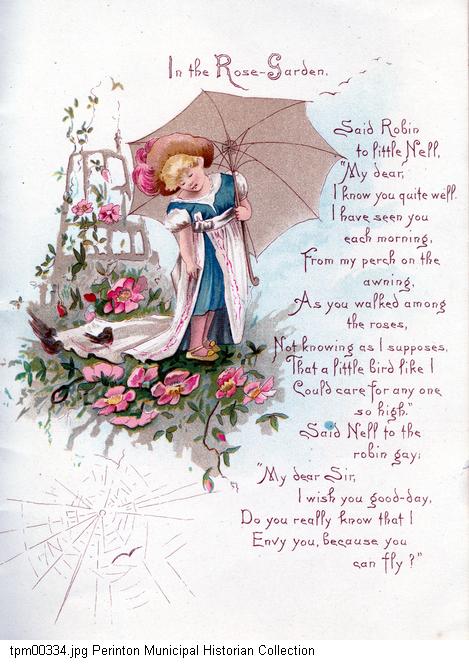 In the Rose-Garden.
Said Robin
to little Nell,
"My dear,
I know you quite well.
I have seen you
each morning,
From my perch on the
awning,
As you walked among
the roses,
Not knowing as I supposes,
That a little bird like I
Could care for any one
so high."
Said Nell to the
robin gay;
"My dear Sir,
I wish you good-day,
Do you really know that I
Envy you, because you
can fly?"
tpm00334.jpg Perinton Municipal Historian Collection